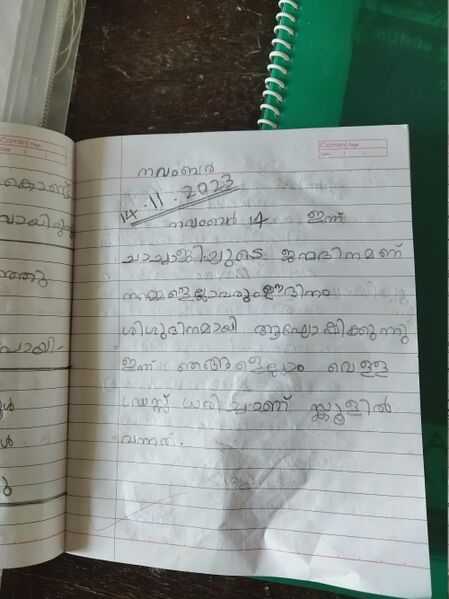 Camlin Page
Date / /
Camlin Page
Date / /
കൊണ്ട്
വായിരുന്നു
പോയി-
നവംബർ
14.11.2023
നവംബർ 14 ഇന്ന്
ചാച്ചാജിയുടെ ജന്മദിനമണ്
നമ്മളെല്ലാവരുംഈദിനം
ശിശുദിനമായി ആഘോഷിക്കുന്നു
ഇന്ന് ഞങ്ങളെല്ലാം വെള്ള
ഡ്രസ്സ് ധരിച്ചാണ് സ്കൂളിൽ
വന്നത്.